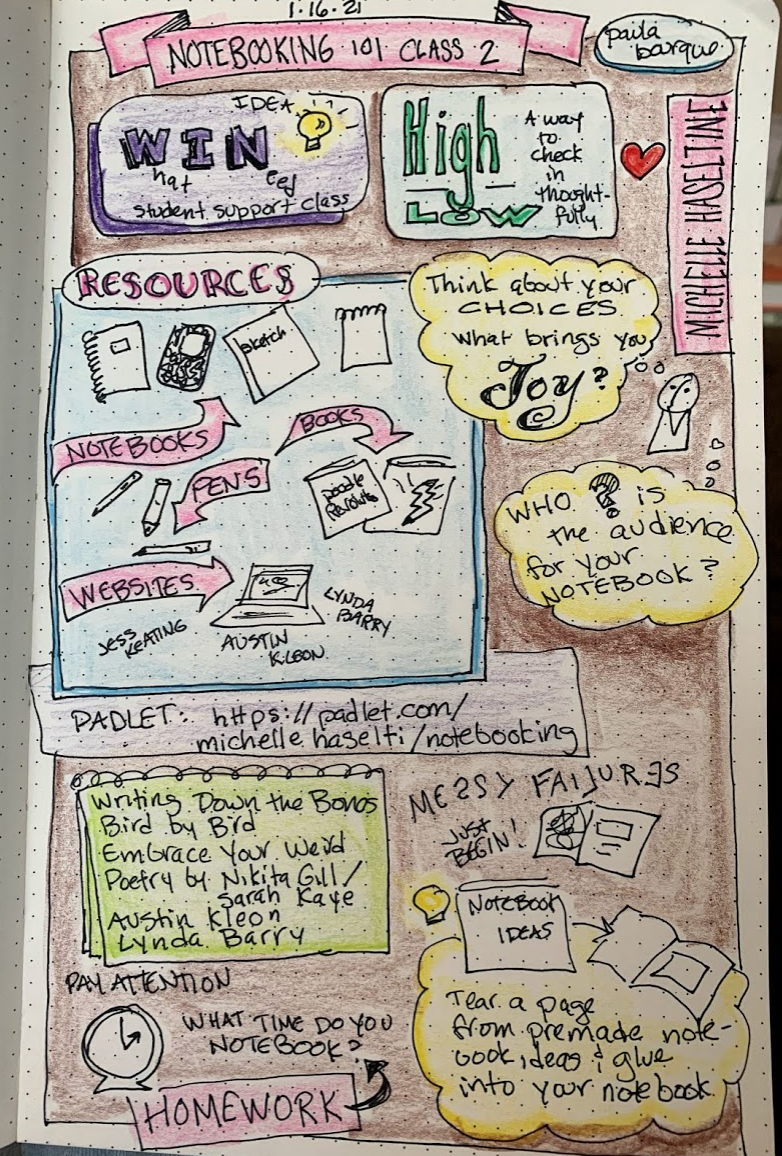 1.16.21
NOTEBOOKING 101 CLASS 2
paula
bourque
IDEA
WIN
hat eed
student support class
High
LOW
A way
to
check
in
thought-
fully
MICHELLE HASELTINE
RESOURCES
sketch
NOTEBOOKS
BOOKS
PENS
Doodle
Revolution
WEBSITES
JESS
KEATING
AUSTIN
KLEON
LYNDA
BARRY
Think about your
CHOICES
what brings you
Joy?
WHO ? is
the audience
for your
NOTEBOOK?
PADLET: https://padlet.com/
michelle haselti/notebooking
Writing Down the Bones
Bird by Bird
Embrace Your Weird
Poetry by Nikita Gill/
Sarah Kaye
Austin Kleon
Lynda Barry
MESSY FAILURES
JUST
BEGIN!
NOTEBOOK
IDEAS
Tear a page
from premade note-
book, ideas & glue
into your notebook.
PAY ATTENTION
WHAT TIME DO YOU
NOTEBOOK?
HOMEWORK